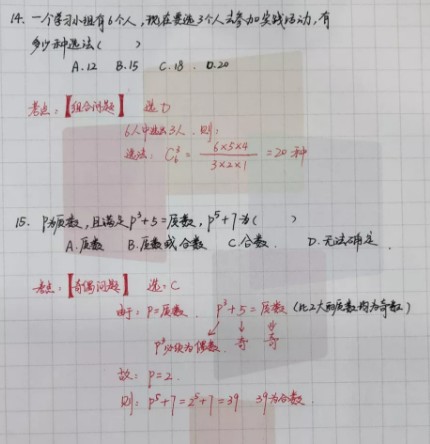 14. 一个学习小组有6个人,现在要选3个人去参加实践活动,有
多少种选法( )
A.12 B.15 C.18. D.20
考点:【组合问题】 选D
6人中选出3人.则:
选法: C₆³ = 6×5×4 / 3×2×1 = 20种
15. P为质数,且满足P³+5=质数,P⁵+7为( )
A.质数 B.质数或合数 C.合数. D.无法确定.
考点:【奇偶问题】 选:C
由于:P=质数. P³+5=质数(比2大的质数均为奇数)
P³必须为偶数. 奇 奇
故:P=2.
则:P⁵+7=2⁵+7=39 39为合数.